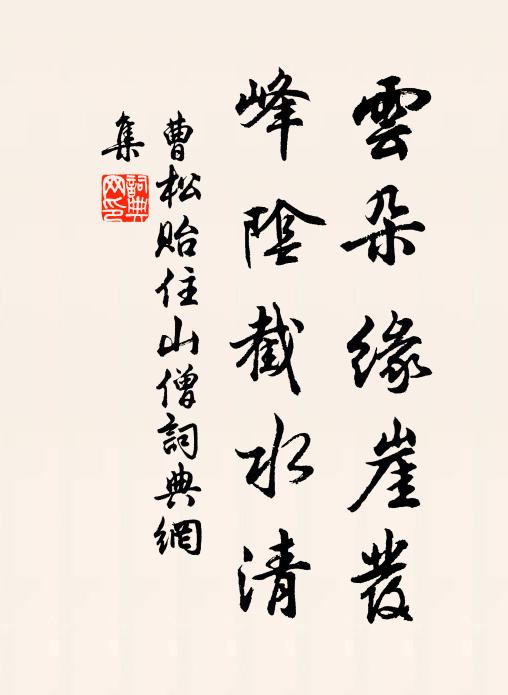 雲朵緣崖發
峰陰截水清
曹松貽住山僧詞典網
集
詞典網印